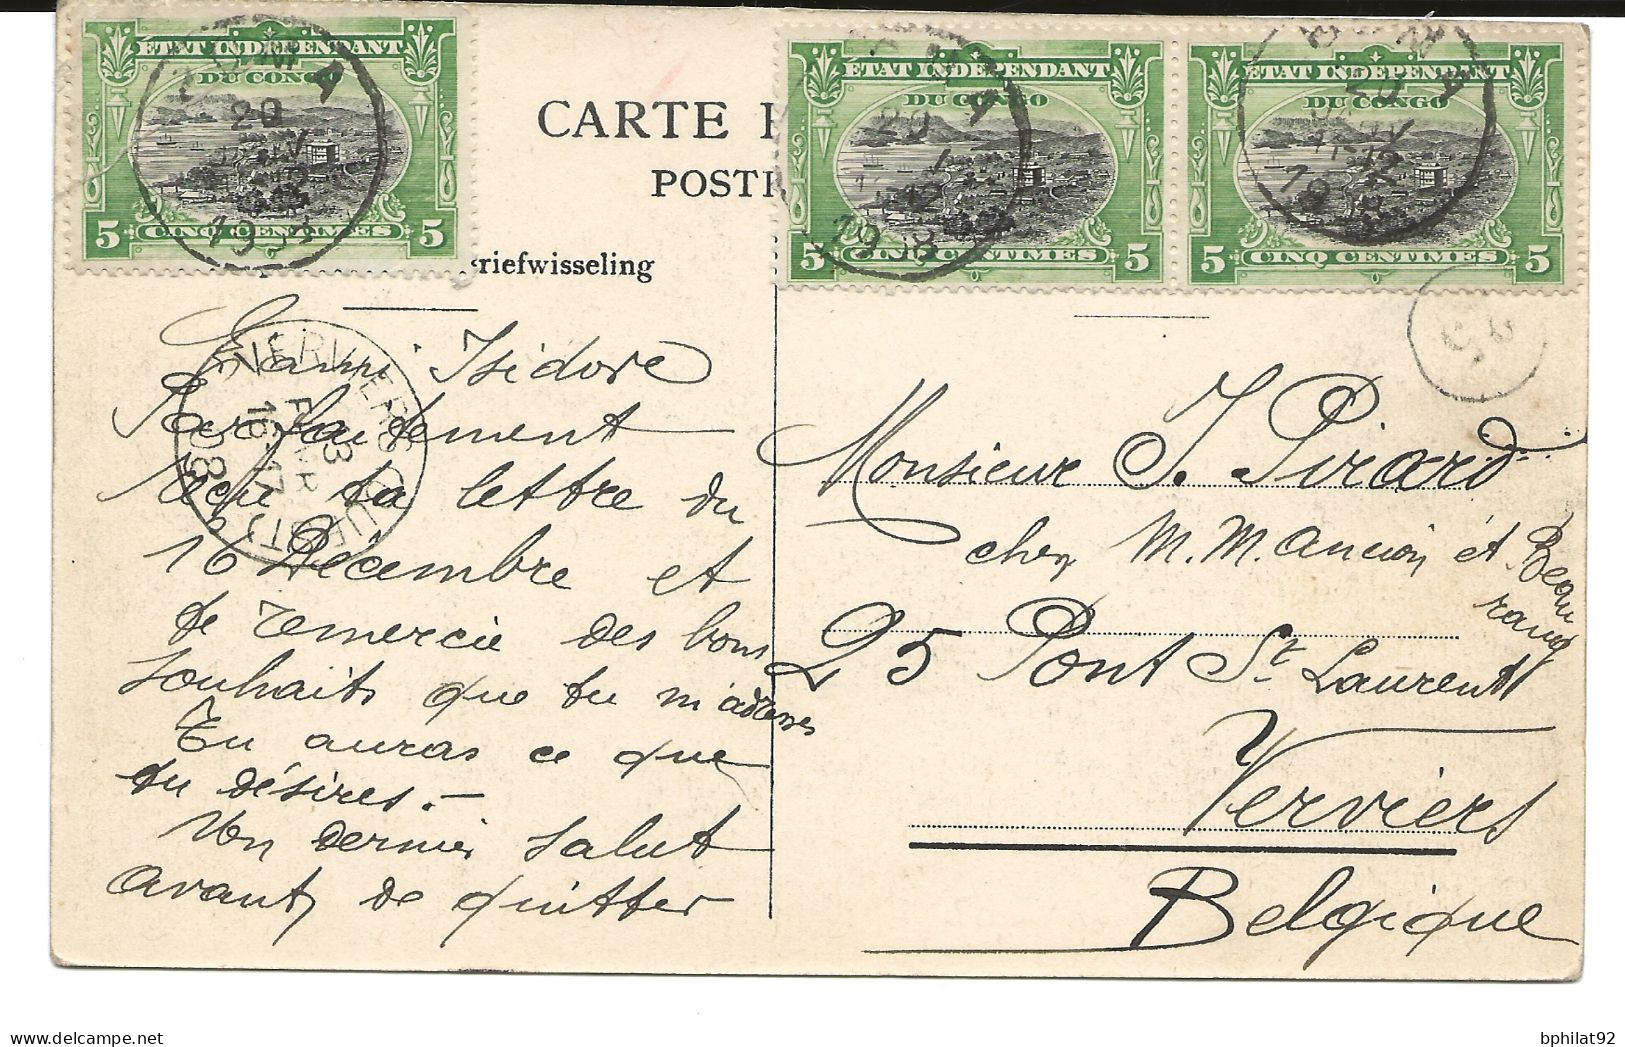 ETAT INDEPENDANT
DU CONGO
5 CINQ CENTIMES 5
ETAT INDEPENDANT
DU CONGO
5 CINQ CENTIMES 5
ETAT INDEPENDANT
DU CONGO
5 CINQ CENTIMES 5
BOMA
20
1908
CARTE
POSTK
riefwisseling
VERVIERS (OUEST)
13
FEVR
16-17
08
L'ami Isidore
Parfaitement
reçu ta lettre du
16 Décembre et
te remercie des bons
souhaits que tu m'adresses
Tu auras ce que
tu désires. -
Un dernier salut
avant de quitter
Monsieur J. Pirard
chez M. M. Ancion et Beau
rang
25 Pont St Laurent
Verviers
Belgique
bphilat92